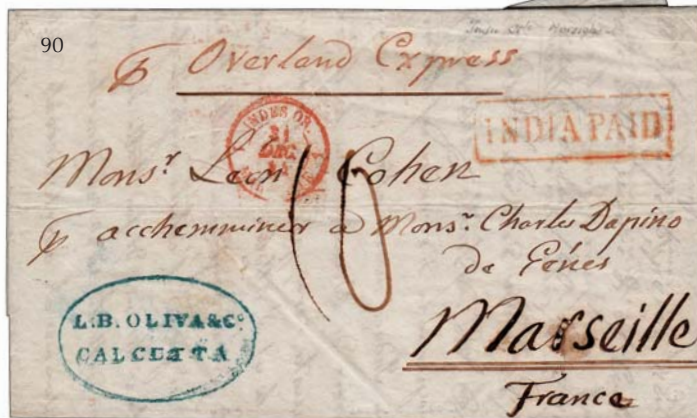 90
℘ Overland Express
INDES OR.
31
DEC.
INDIA PAID
Monsʳ Leon Cohen
℘ acchemminer a Monsʳ Charles Dapino
de Génés
10
L.B. OLIVA & Cº
CALCUTTA
Marseille
France